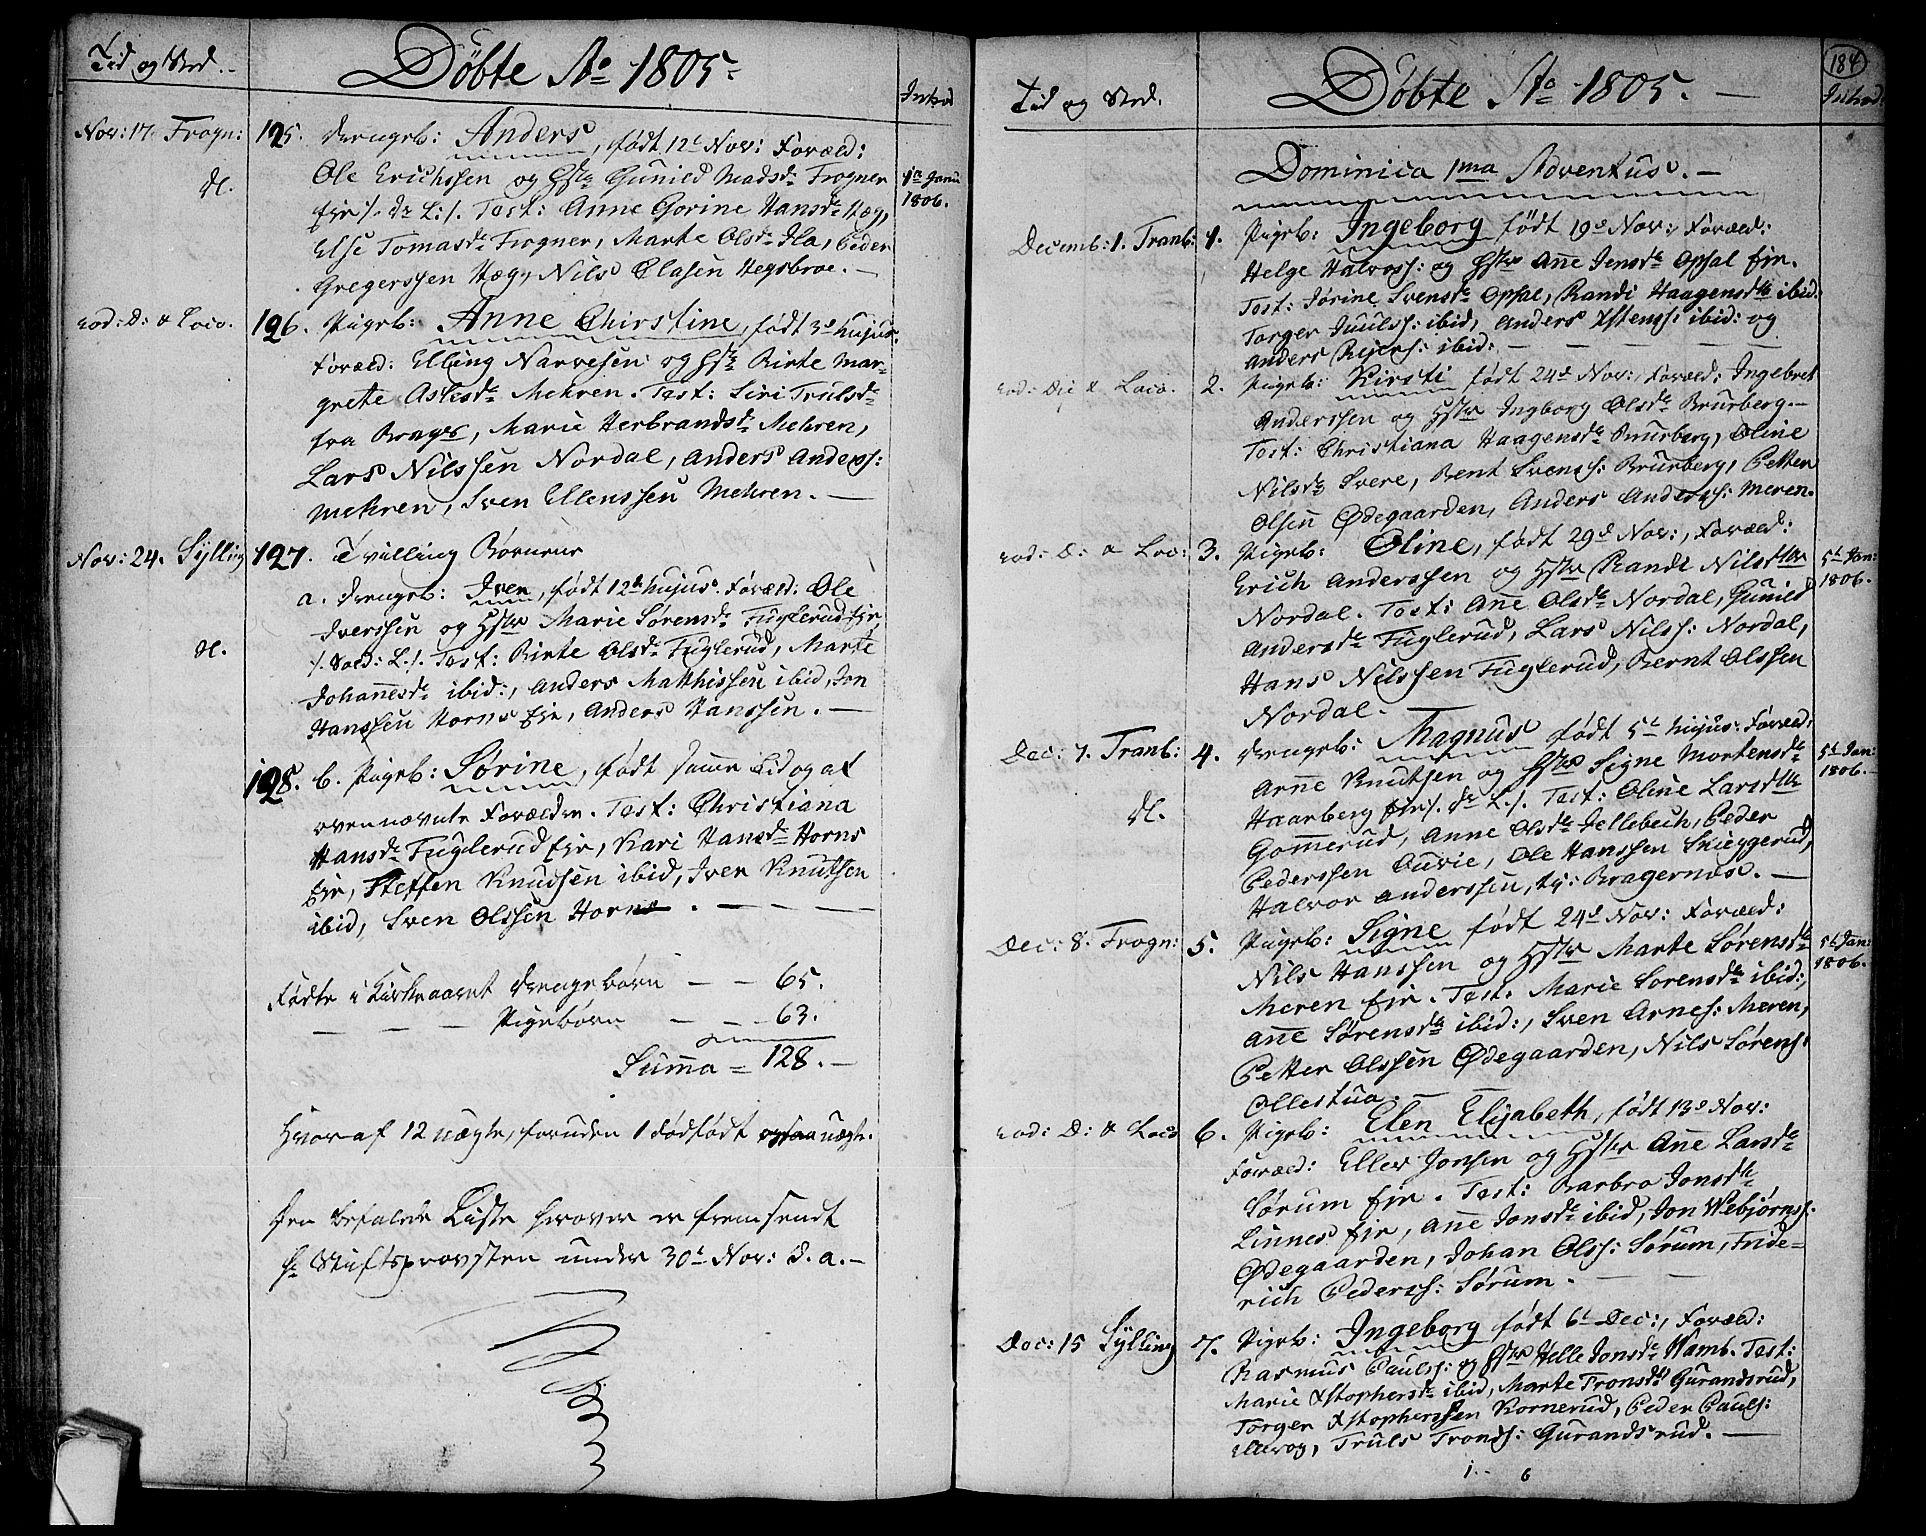 Tid og Sted.
Döbte Ao 1805.
Introd
Nov: 17. Frogn:
125. Drengeb: Anders, født 12t Nov: Foræld:
Ole Erichssen og Hstr Gunild Madsdr Frogner
Eje /. dr L: /. Test: Anne Gorine Hansdr Hæg,
1te Janu
1806.
Else Tomasdr Frogner, Marte Olsdr Ila, Peder
Gregerssen Hæg, Nils Olasen Hegsbroe. —
eod: D: & Loco.
126. Pigeb: Anne Chirstine, født 3d hujus.
Foræld: Elling Narvesen og Hstr Birte Mar-
grete Aslesdr Mehren. Test: Siri Trulsdr
fra Brages, Marie Herbrandsdr Mehren,
Lars Nilssen Nordal, Anders Anderss:
Mehren, Sven Ellenssen Mehren. —
Nov: 24. Sylling
127. Tvilling Børnene
a. Drengeb: Iven, født 12te hujus. Foræld: Ole
Iverssen og Hstr Marie Sørensdr Fuglerud Eje,
/. Sold: L: /. Test: Birte Olsdr Fuglerud, Marte
Johannesdr ibid:, Anders Matthissen ibid, Jon
Hanssen Horns Eje, Anders Hanssen. —
128. b. Pigeb: Sørine, født samme Tid og af
ovennævnte Forældre. Test: Christiana
Hansdr Fuglerud Eje, Kari Hansdr Horns
Eje, Steffen Knudsen ibid, Iver Knutsen
ibid, Sven Olssen Horn.
Fødte i Kirkeaaret Drengebørn — — 65.
— — — Pigebørn — — 63.
Summa = 128. —
Hvoraf 12 uægte, foruden 1 dødfødt ogsaa uægte.
Den befalede Liste herover er fremsendt
Hr Stiftsprovsten under 30t Nov: d. a. —
184
Tid og Sted.
Döbte Ao 1805. —
Introd.
Dominica 1ma Adventus. —
Decemb: 1. Tranb:
1. Pigeb: Ingeborg født 19d Nov:, Foræld:
Helge Halvorss: og Hstr Anne Jensdr Opsal Eje.
Test: Jørine Svensdr Opsal, Randi Haagensdtr ibid:
Torger Juulss: ibid, Anders Xstenss: ibid: og
Anders Rejerss: ibid: — — — —
eod: Die & Loco.
2. Pigeb: Kirsti født 24d Nov:, Foræld: Ingebret
Anderssen og Hstr Ingborg Olsdr Brurberg. —
Test: Christiana Haagensdr Brurberg, Oline
Nilsdr Svere, Bent Svenss: Brurberg, Petter
Olsen Ødegaarden, Anders Anderss: Meren.
eod: D: & Loc:
3. Pigeb: Oline, født 29d Nov:, Foræld:
Erich Anderssen og Hstr Randi Nilsdtr
5t Jan:
1806.
Nordal. Test: Anne Olsdr Nordal, Gunild
Andersdr Fuglerud, Lars Nilss: Nordal,
Hans Nilssen Fuglerud, Bernt Olssen
Nordal.
Dec: 7. Tranb:
4. Drengeb: Magnus født 5t hujus: Foræld:
Arne Knutsen og Hstr Signe Mortensdr
5t Jan:
1806.
Haarberg Eje /. dr L: /. Test: Oline Larsdtr
Gommerud, Anne Olsdr Jellebech, Peder
Pederssen Ouvie, Ole Hanssen Skieggerud,
Halvor Anderssen, Bragernæs. —
Dec: 8. Frogn:
5. Pigeb: Signe født 24d Nov: Foræld:
Nils Hanssen og Hstr Marte Sørensdr
5t Jan:
1806.
Meren Eje. Test: Marie Sorensdr ibid:,
Anne Sørensdr ibid:, Sven Arnes: Meren,
Petter Olssen Ødegaarden, Nils Sørens:
Ollestua. —
eod: D: & Loco
6. Pigeb: Elen Elisabeth, født 13d Nov:
Foræld: Ellev Jonsen og Hstr Anne Larsdr
Sørum Eje. Test: Barbro Jonsdr
Linnes Eje, Anne Jonsdr ibid, Jon Webjørnss:
Ødegaarden, Johan Olss: Sørum, Fride-
rich Pederss: Sørum. — —
Dec: 15 Sylling
7. Pigeb: Ingeborg født 6t Dec:, Foræld:
Rasmus Paulss: og Hstr Helle Jonsdr Wamb. Test:
Marie Xstophersdr ibid, Marte Tronsdr Gurandsrud,
Torger Xstopherssen Kornerud, Peder Pauls:
Truls Tronds: Gurandsrud. —